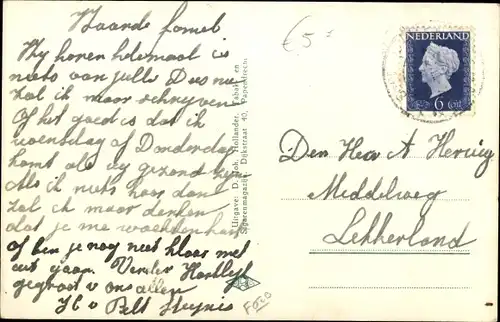 Waarde fomel
Wy horen helemaal
niets van jullie Dus nu
zal ik maar schrijven
Of het goed is dat ik
woensdag of Donderdag
komt als wy gezond zyn
Als ik niets hoor dan
zal ik maar denken
dat je me wachtende
of ben je nog niet klaar met
gaan. Verder Hartelyk
gegroet v ons allen
H v Pelt Huynis
Uitgave: D. Joh. Hollander, Tabak- en
Sigarenmagazijn, Dijkstraat 40, Papendrecht.
€ 5
NEDERLAND
6 Cent
Den Heer A Herwig
Middelweg
Lekkerland
Foto